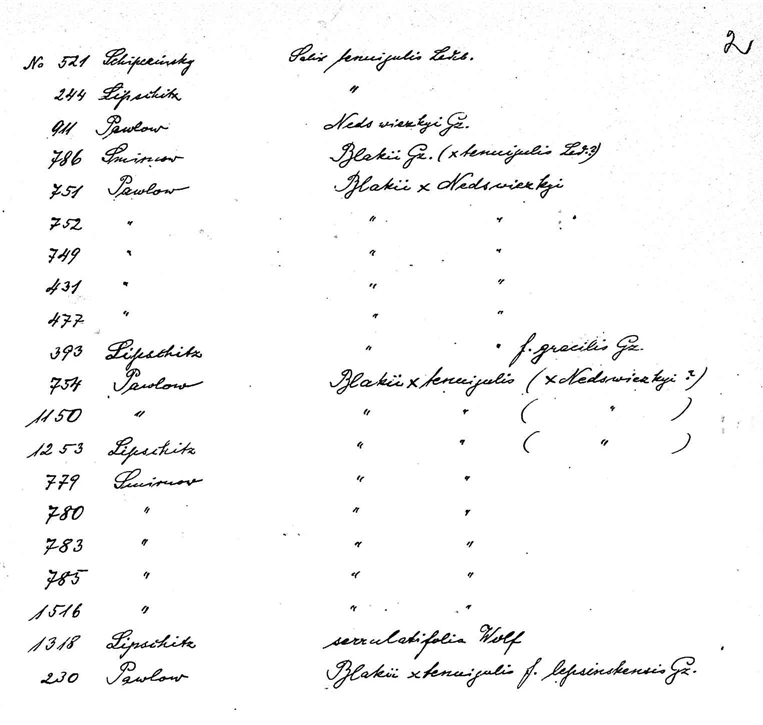 2
No 521 Schipczinsky Salix tenuijulis Ledeb.
244 Lipschitz "
911 Pawlow Nedswiezkyi Gz.
786 Smirnow Blakii Gz. (x tenuijulis Led.?)
751 Pawlow Blakii x Nedswiezkyi
752 " " "
749 " " "
431 " " "
477 " " "
393 Lipschitz " " f. gracilis Gz.
754 Pawlow Blakii x tenuijulis (x Nedswiezkyi ?)
1150 " " " ( " )
1253 Lipschitz " " ( " )
779 Smirnow " "
780 " " "
783 " " "
785 " " "
1516 " " "
1318 Lipschitz serrulatifolia Wolf
230 Pawlow Blakii x tenuijulis f. lepsinskensis Gz.